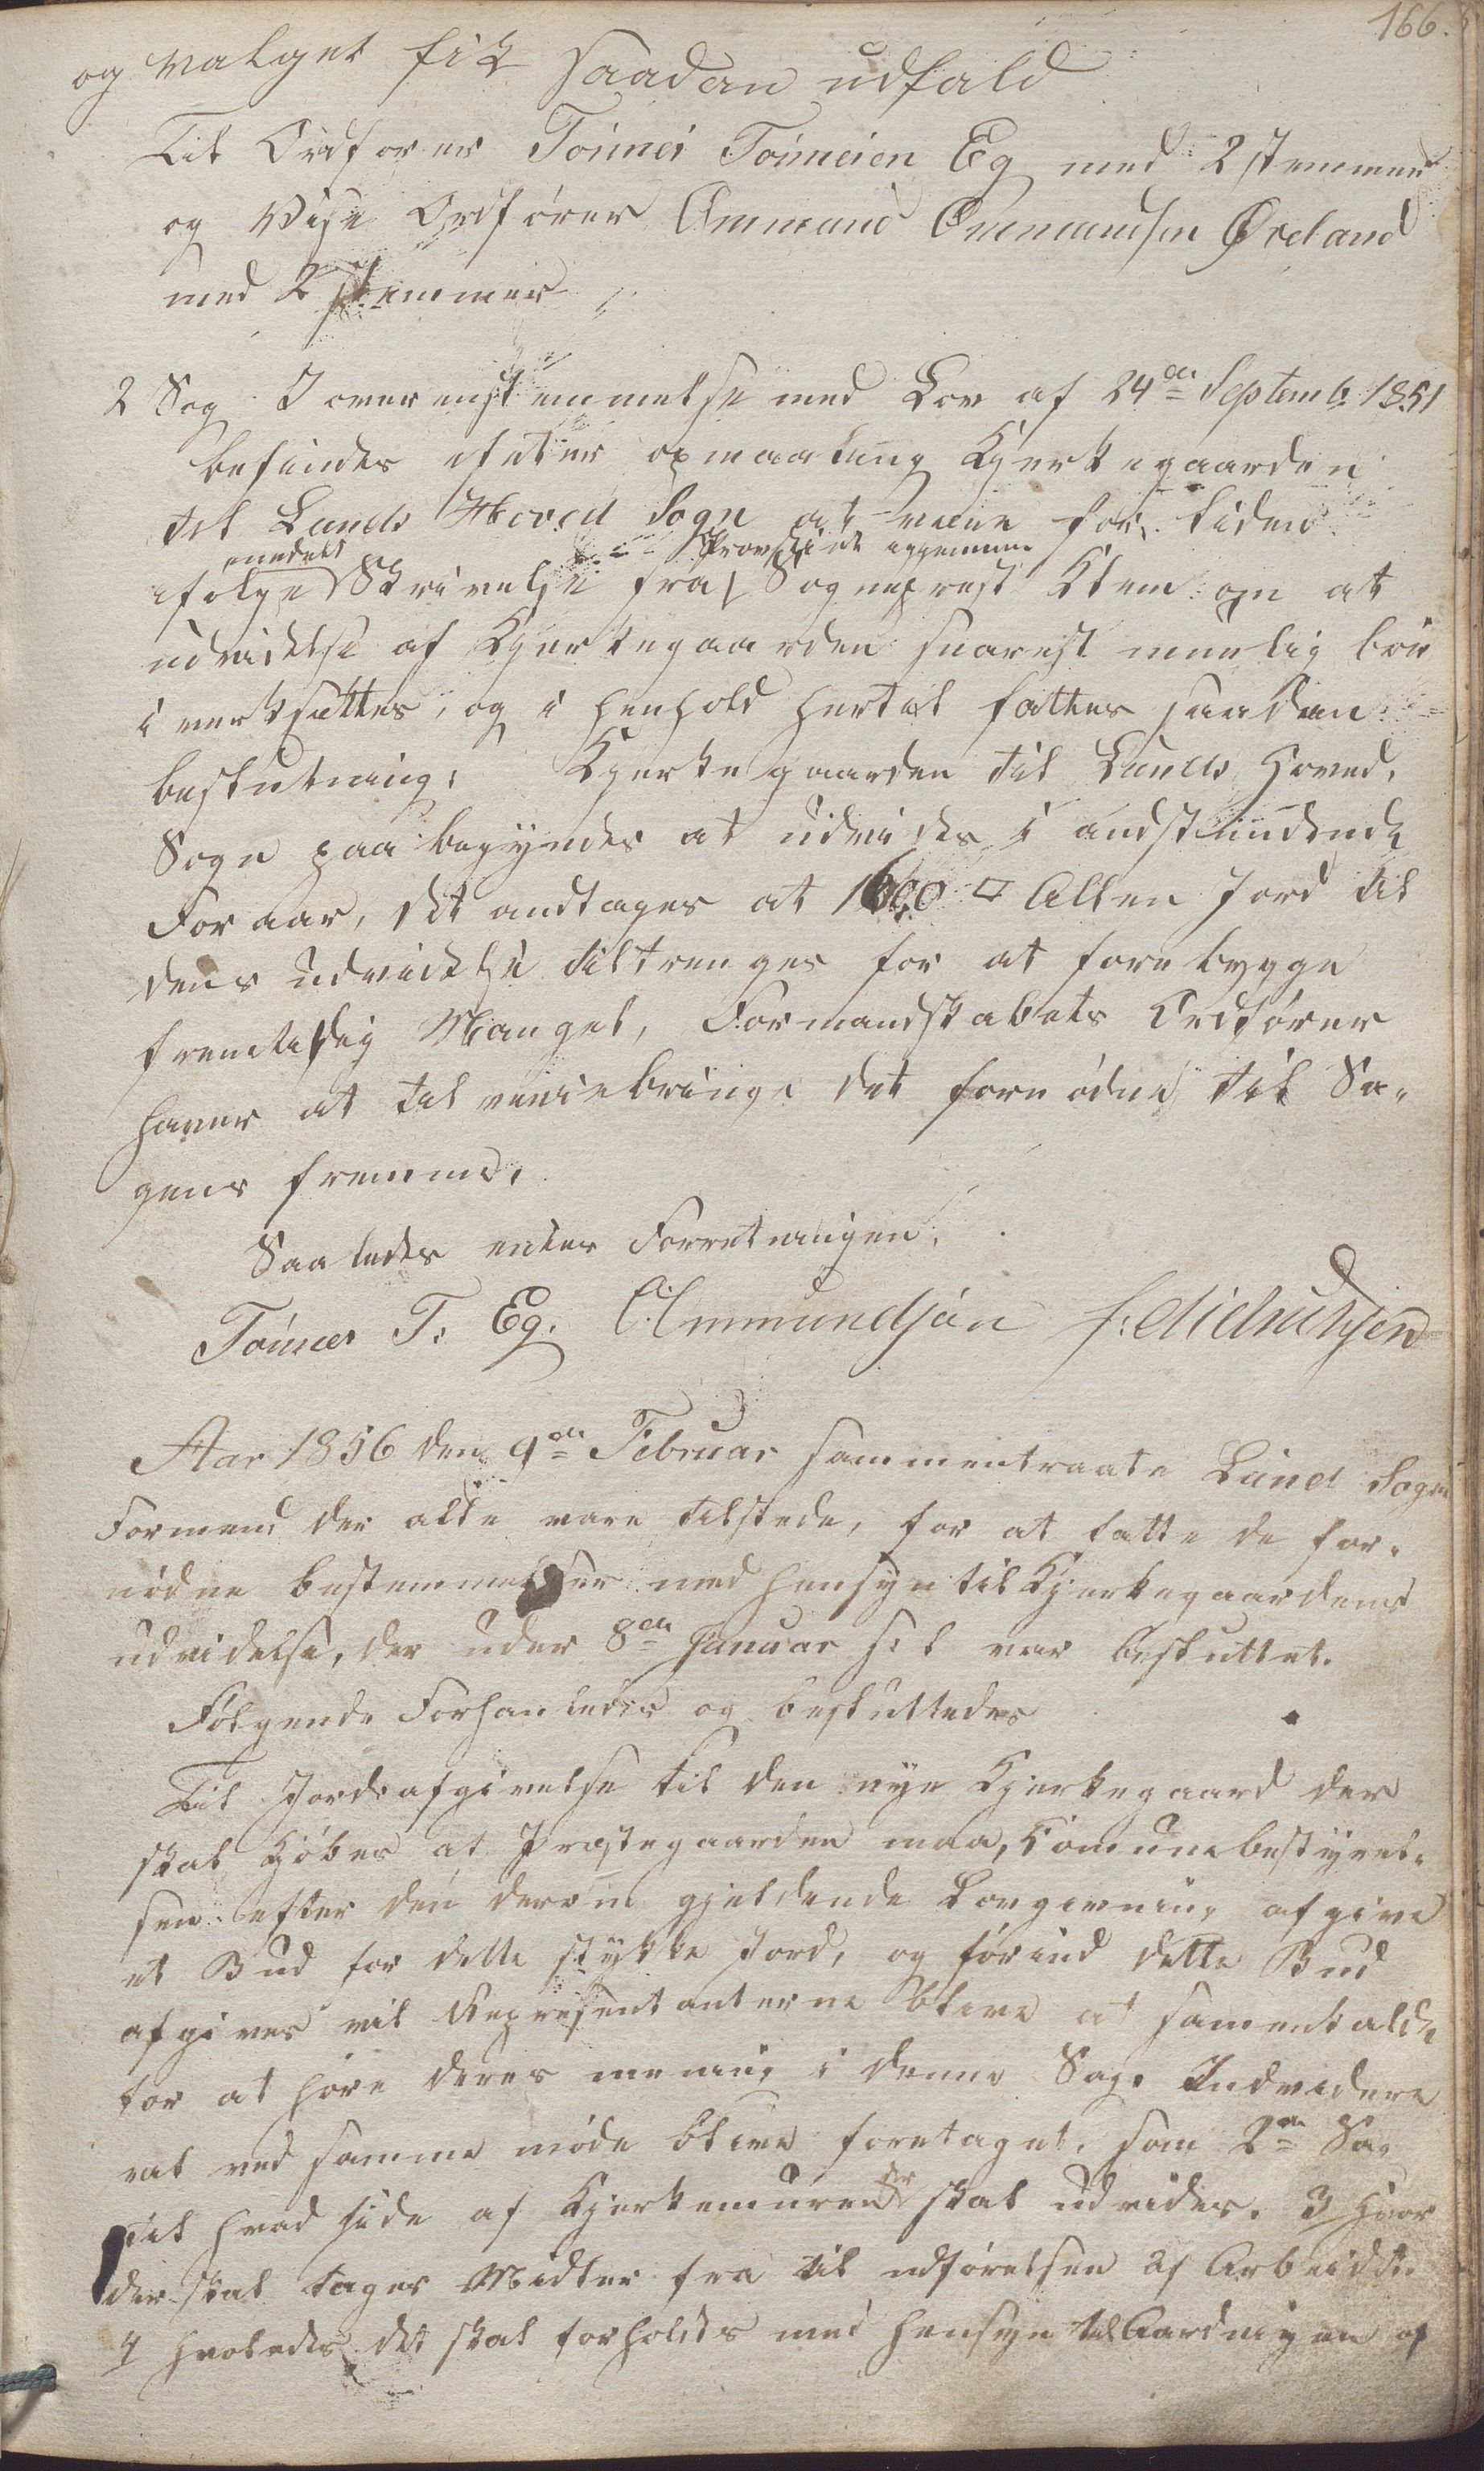 166.
og valget fik saadan udfald
Til Ordforer Tönnes Tönnesen Eg med 2 stemmer
og Vise Ordfører Ommund Ommundsen Øreland
med 2 stemmer
2 Sag I overenstemmelse med Lov af 24de Septemb. 1851
befindes efter opmaaling Kjerkegaarden
til Lunds Hoved Sogn at være for liden
ifølge meddelt Skrivelse fra Provstiet igjennem Sogneprest Klem om at
udvidelse af Kjerkegaarden snarest muelig bör
iverksættes, og i henhold hertil fattes saadan
beslutning: Kjerkegaarden til Lunds Hoved-
Sogn paabegyndes at udvides i andstundende
Foraar, Det andtages at 1600 □ Allen Jord til
dens udvidelse tiltrenges for at forebygge
fremtidig Mangel, Formandskabets Ordfører
haver at tilveiebringe det fornödne til Sa-
gens fremme.
Saaledes endes Forretningen.
Tönnes T. Eg. O: Ommundsön
Aar 1856 den 9de Februar sammentraate Lund Sogns
Formend der alle vare tilstede, for at fatte de for-
nödne bestemmelser med hensyn til Kjerkegaardens
udvidelse, der under 8de Januar s: l var besluttet.
Følgende Forhanledes og besluttedes
Til Jordsafgivelse til den nye Kjerkegaard der
skal Kjöbes af Prostegaarden maa, Komunebestyrel-
sen efter den derom gjeldende Lovgivning afgive
et Bud for dette stykke Jord, og förind dette Bud
afgives vil Representanterne blive at samenkalde
for at höre deres mening i denne Sag. Endvidere
vil ved samme möde blive foretaget, som 2de Sa.
til hvad side af Kjerkemuren der skal udvides. 3 Hvor
der skal tages Midler fra til udförelsen af Arbeidet.
4 hvoledes det skal forholdes med hensyn til Aardningen af